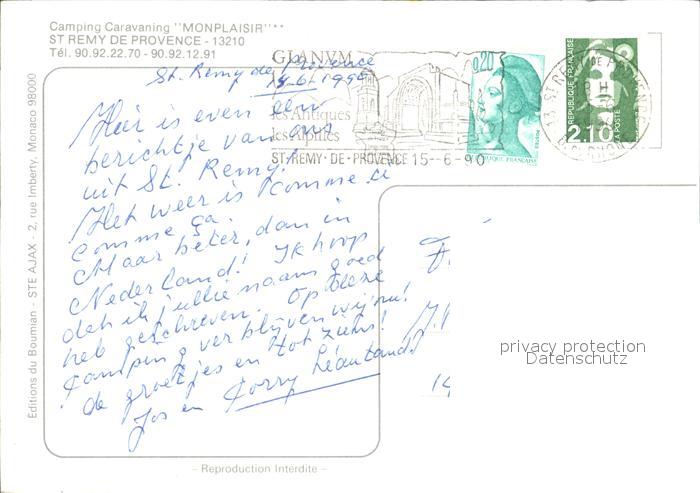 Camping Caravaning "MONPLAISIR"**
ST REMY DE PROVENCE - 13210
Tél. 90.92.22.70 - 90.92.12.91
GLANVM
les Antiques
les Alpilles
ST-REMY-DE-PROVENCE 15--6-90
0,20
REPUBLIQUE FRANÇAISE
REPUBLIQUE FRANÇAISE
2,10
LA POSTE
St. Remy de Provence
15-6-1990
Hier is even een
berichtje van ons
uit St. Remy!
Het weer is comme ci
comme ça.
Maar beter, dan in
Nederland! Ik hoop
dat ik jullie naam goed
heb geschreven. Op deze
Camping verblijven wij nu!
de groetjes en tot ziens!
Jos en Corry
Editions du Boumian - STE AJAX - 2, rue Imberty, Monaco 98000
privacy protection
Datenschutz
- Reproduction Interdite -